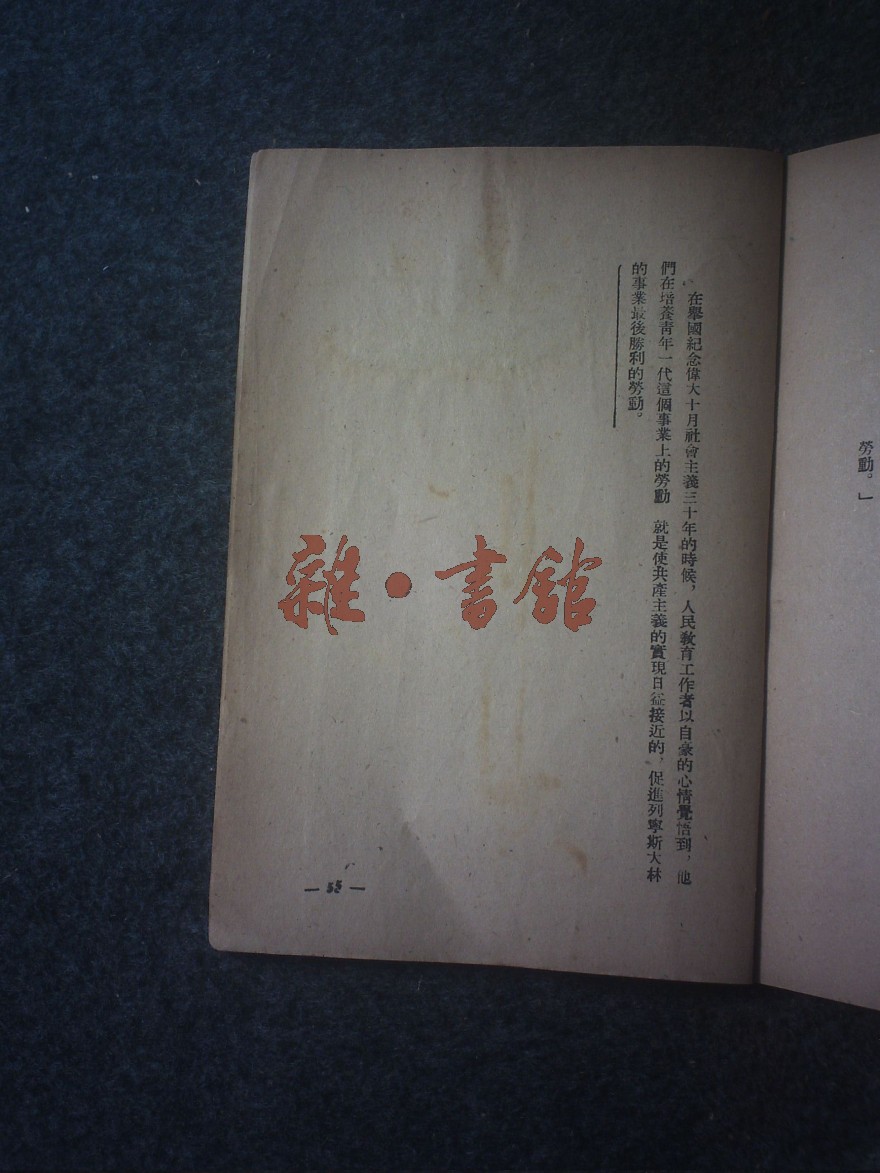 勞動。」
在舉國紀念偉大十月社會主義三十年的時候，人民教育工作者以自豪的心情覺悟到，他
們在培養青年一代這個事業上的勞動　就是使共產主義的實現日益接近的，促進列寧斯大林
的事業最後勝利的勞動。
— 55 —
雜·書館